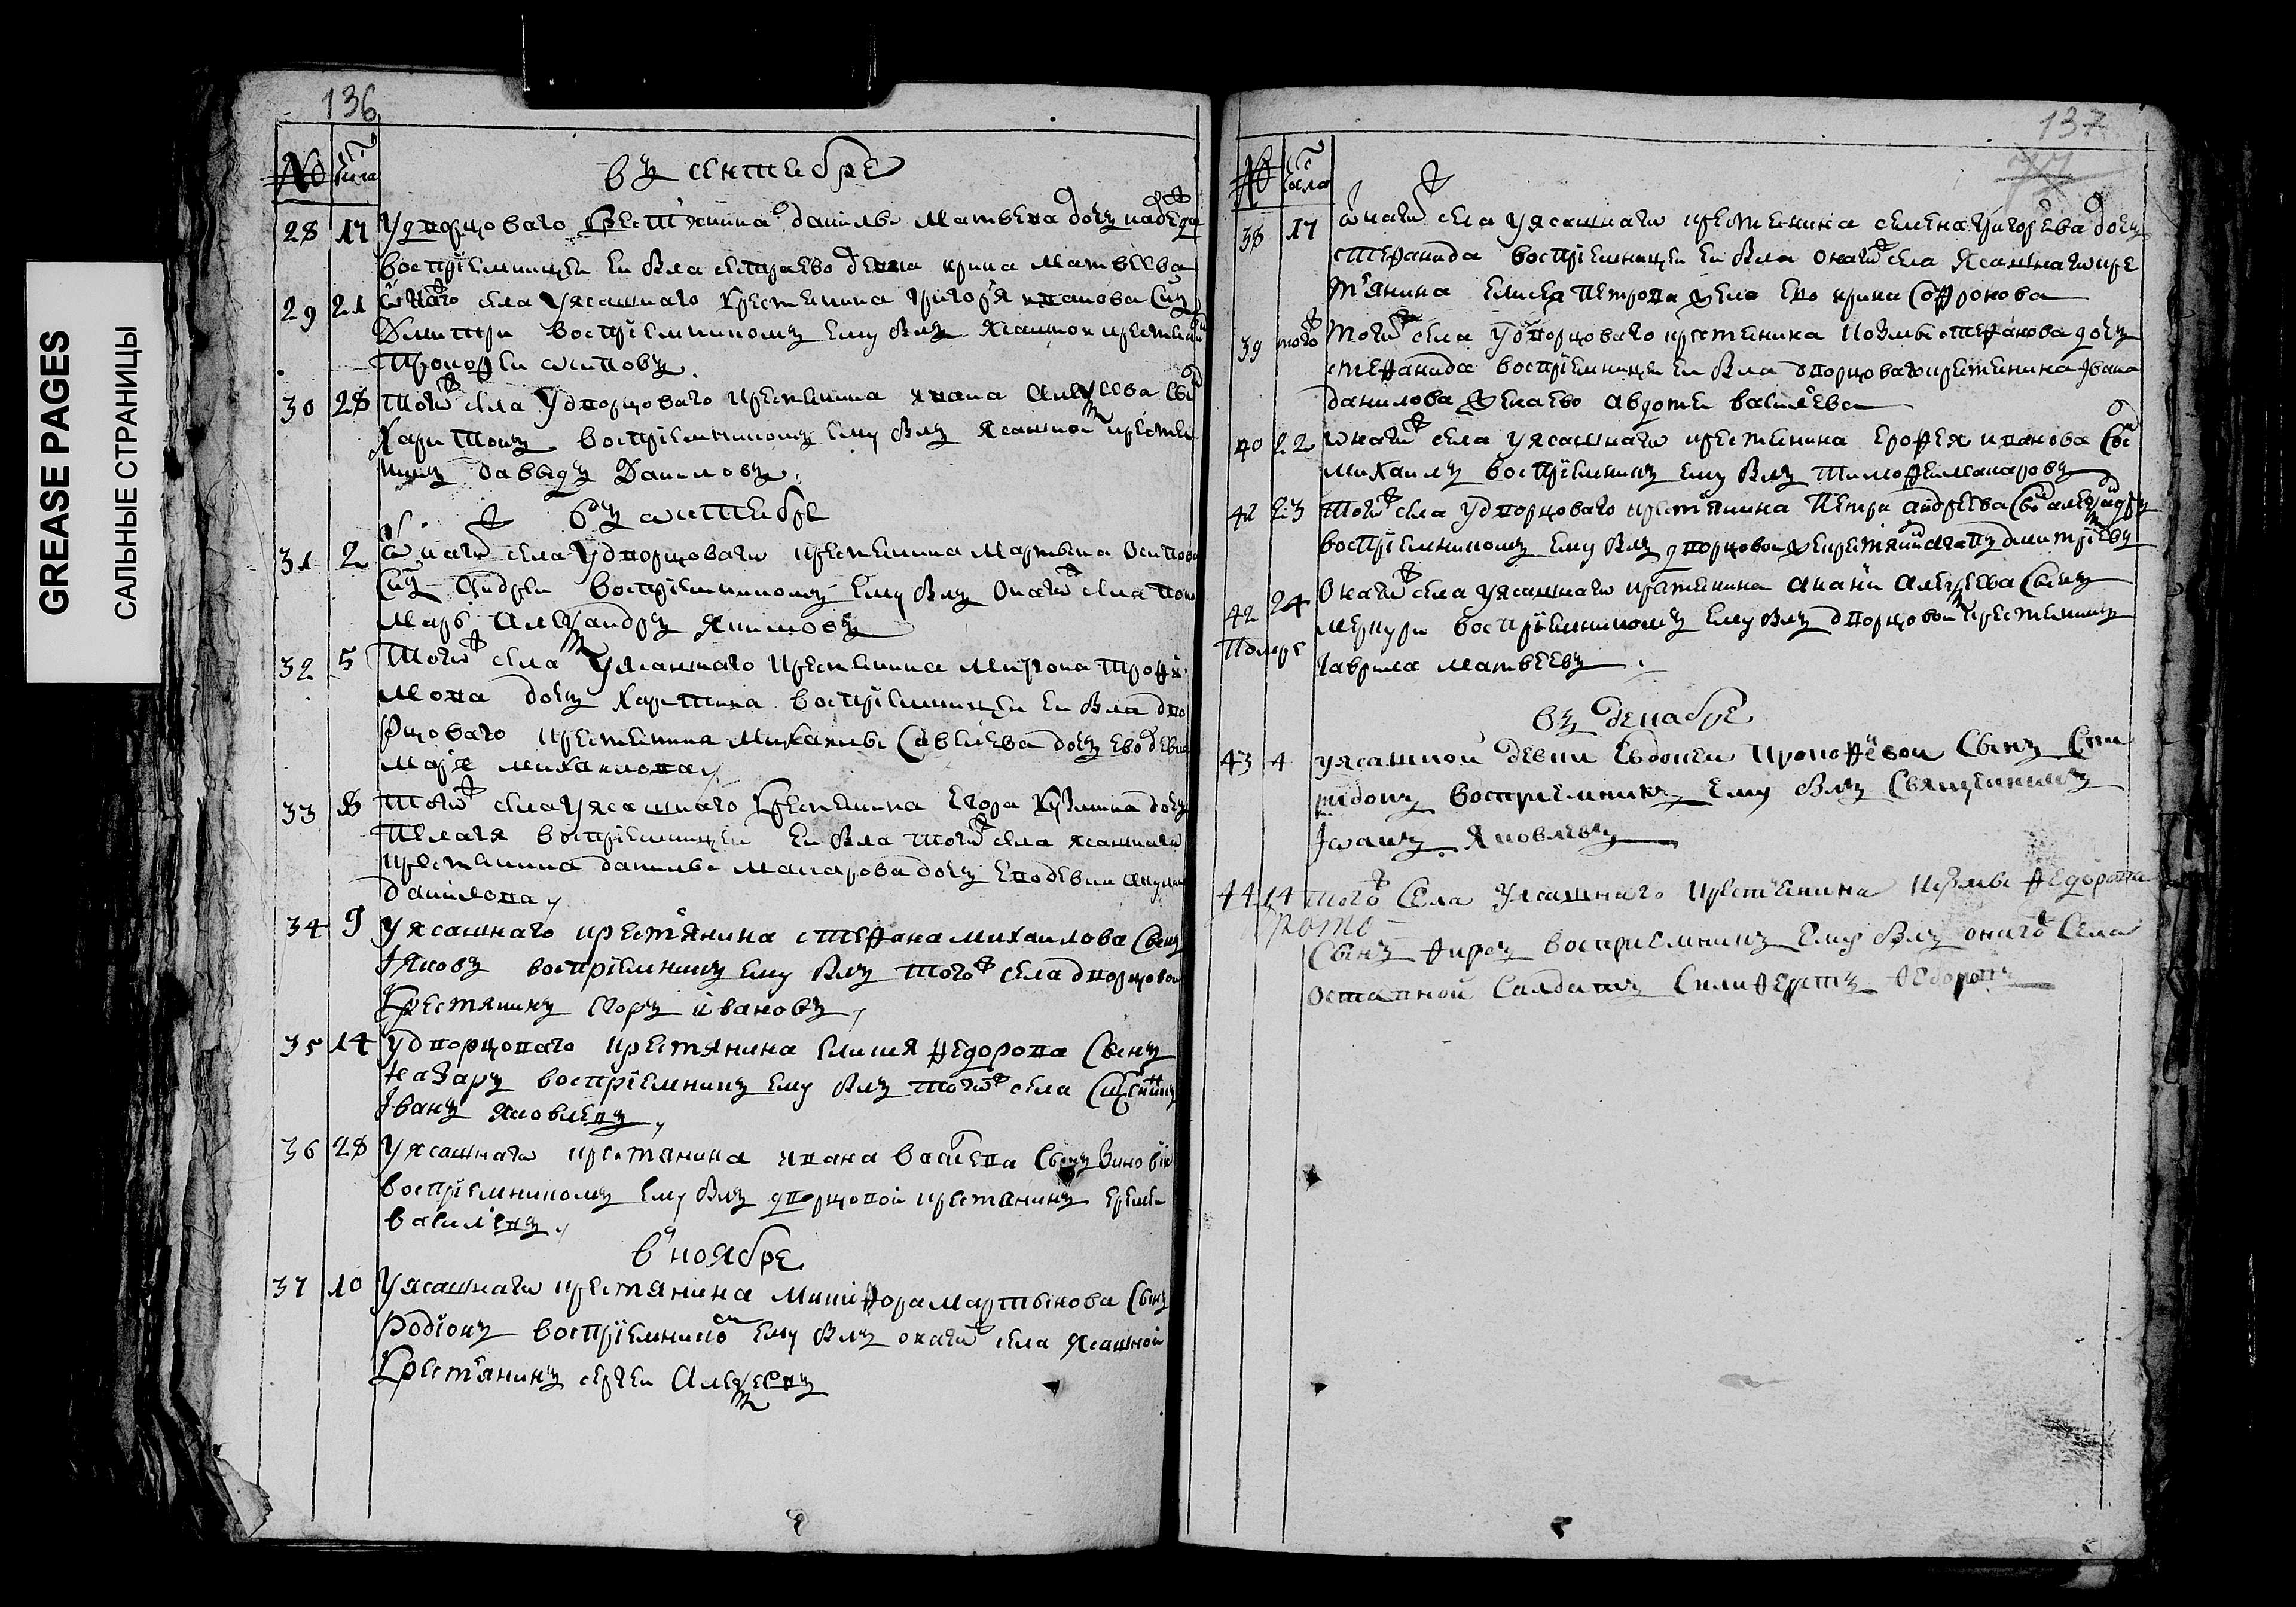 GREASE PAGES
САЛЬНЫЕ СТРАНИЦЫ
136
№ числа
въ сентебре
28 17 У дворцоваго крестьянина данилы матвева дочь надежда
восприемницеи еи была сестра ево девка ирина матвеева
29 21 онаго села у ясашнаго крестенина григорья иванова сынъ
Димитри восприемникомъ ему былъ ясашнои крестенинъ
Прокофеи осиповъ
30 28 того села у дворцоваго крестенина ивана алексеева сынъ
Харитонъ восприемникомъ ему былъ ясашнои крестени
нинъ давыдъ Даниловъ
въ октебре
31 2 онаго села у дворцоваго крестенина мартына осипова
сынъ Андреи восприемникомъ ему былъ онаго села поно
марь Александръ Якимовъ
32 5 того села у ясашнаго крестенина мирона трофи
мова дочь харитина восприемницеи еи была дво
рцоваго крестенина михаилы савелева дочь ево девка
марья михаилова
33 8 того села у ясашнаго крестенина егора кузмина дочь
пелагя восприемницеи еи была того села ясашнаго
крестенина данилы макарова дочь ево девка
данилова
34 9 у ясашнаго крестьянина стефана михаилова сынъ
яковъ восприемникъ ему былъ того села дворцовои
крестянинъ егоръ ивановъ
35 14 у дворцоваго крестянина елисея федорова сынъ
назаръ восприемникъ ему былъ того села священникъ
іванъ яковлевъ
36 28 у ясашнаго крестянина ивана васильева сынъ зиновеи
восприемникомъ ему былъ дворцовои крестянинъ еремеи
василевъ
в ноябре
37 10 у ясашнаго крестянина микифора мартынова сынъ
родіонъ восприемником ему былъ онаго села ясашной
крестьянинъ сергеи алексеевъ
137
77
№ числа
38 17 онаго села у ясашнаго крестенина семена григорева дочь
стефанида восприемницеи еи была онаго села ясашнаго кре
тьянина елисея петрова жена ево ирина софронова
39 того того села у дворцоваго крестенина козмы стефанова дочь
стефанида восприемницеи еи была дворцоваго крестенина івана
данилова жена ево авдотеи василева
40 22 онаго села у ясашнаго крестенина ерофея иванова сынъ
михаилъ восприемникъ ему былъ тимофеи макаровъ
42 23 того села у дворцоваго крестянина петра андреева сынъ александръ
восприемникомъ ему былъ дворцовои крестянинъ дмитріевъ
42 24 онаго села у ясашнаго крестенина анани алексеева сынъ
меркури восприемникомъ ему былъ дворцовои крестенинъ
Помре гаврила матвеевъ
въ декабре
43 4 у ясашной девки евдокеи прокофевои сынъ спи
ридонъ восприемникъ ему былъ священникъ
іоанъ яковлевъ
44 14 того села у ясашнаго крестьенина козмы федорова
сынъ фирсъ восприемникъ ему былъ онаго села
оставной салдатъ силиферстъ федоровъ